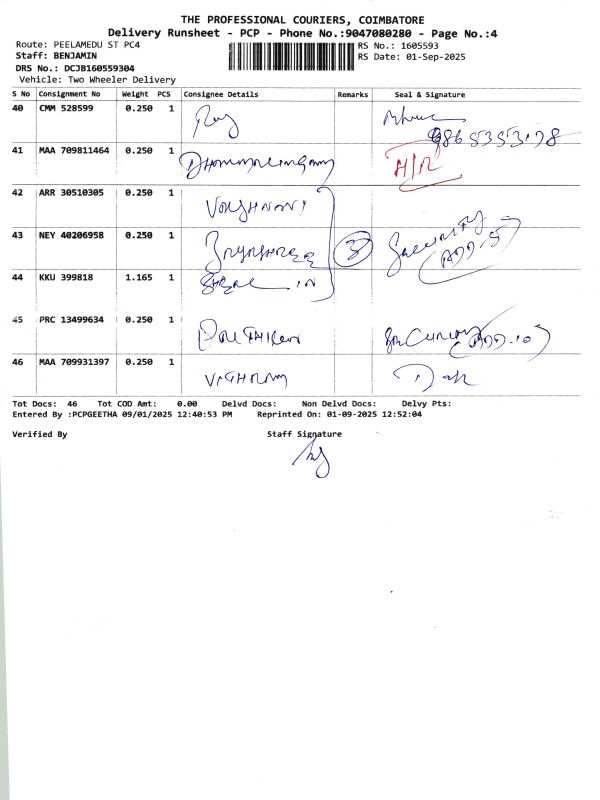 THE PROFESSIONAL COURIERS, COIMBATORE
Delivery Runsheet - PCP - Phone No.:9047080280 - Page No.:4
Route: PEELAMEDU ST PC4
RS No.: 1605593
Staff: BENJAMIN
RS Date: 01-Sep-2025
DRS No.: DCJB160559304
Vehicle: Two Wheeler Delivery
S No Consignment No Weight PCS Consignee Details Remarks Seal & Signature
40 CMM 528599 0.250 1
41 MAA 709811464 0.250 1 H/R
42 ARR 30510305 0.250 1
43 NEY 40206958 0.250 1 3 Security
44 KKU 399818 1.165 1
45 PRC 13499634 0.250 1 Security
46 MAA 709931397 0.250 1
Tot Docs: 46 Tot COD Amt: 0.00 Delvd Docs: Non Delvd Docs: Delvy Pts:
Entered By :PCPGEETHA 09/01/2025 12:40:53 PM Reprinted On: 01-09-2025 12:52:04
Verified By Staff Signature